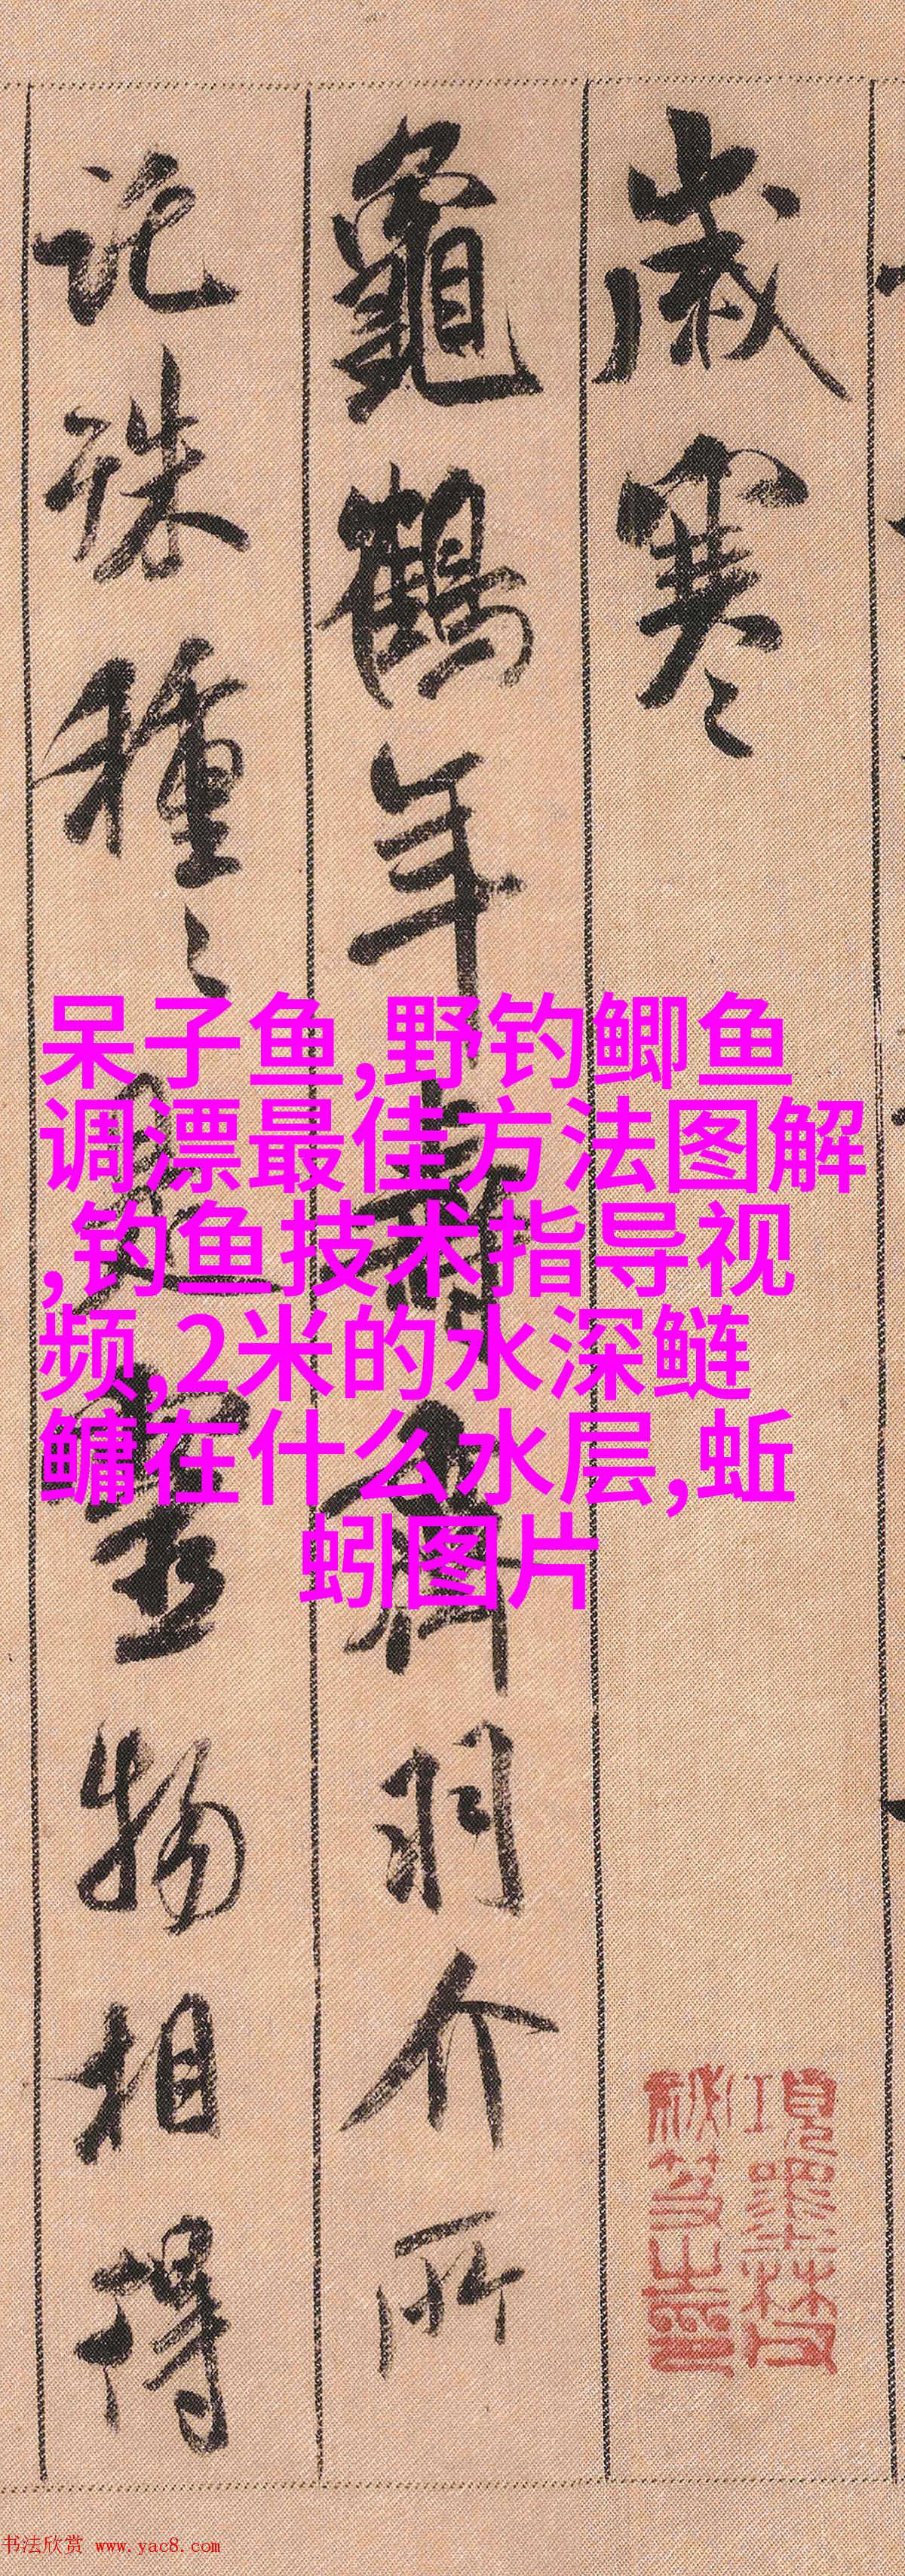 歲寒〻
龜鶴年壽齊羽介所
託珠種〻是靈物相得
呆子鱼,野钓鲫鱼
调漂最佳方法图解
,钓鱼技术指导视
频,2米的水深鲢
鳙在什么水层,蚯
蚓图片
項墨林父
秘笈之印
书法欣赏 www.yac8.com